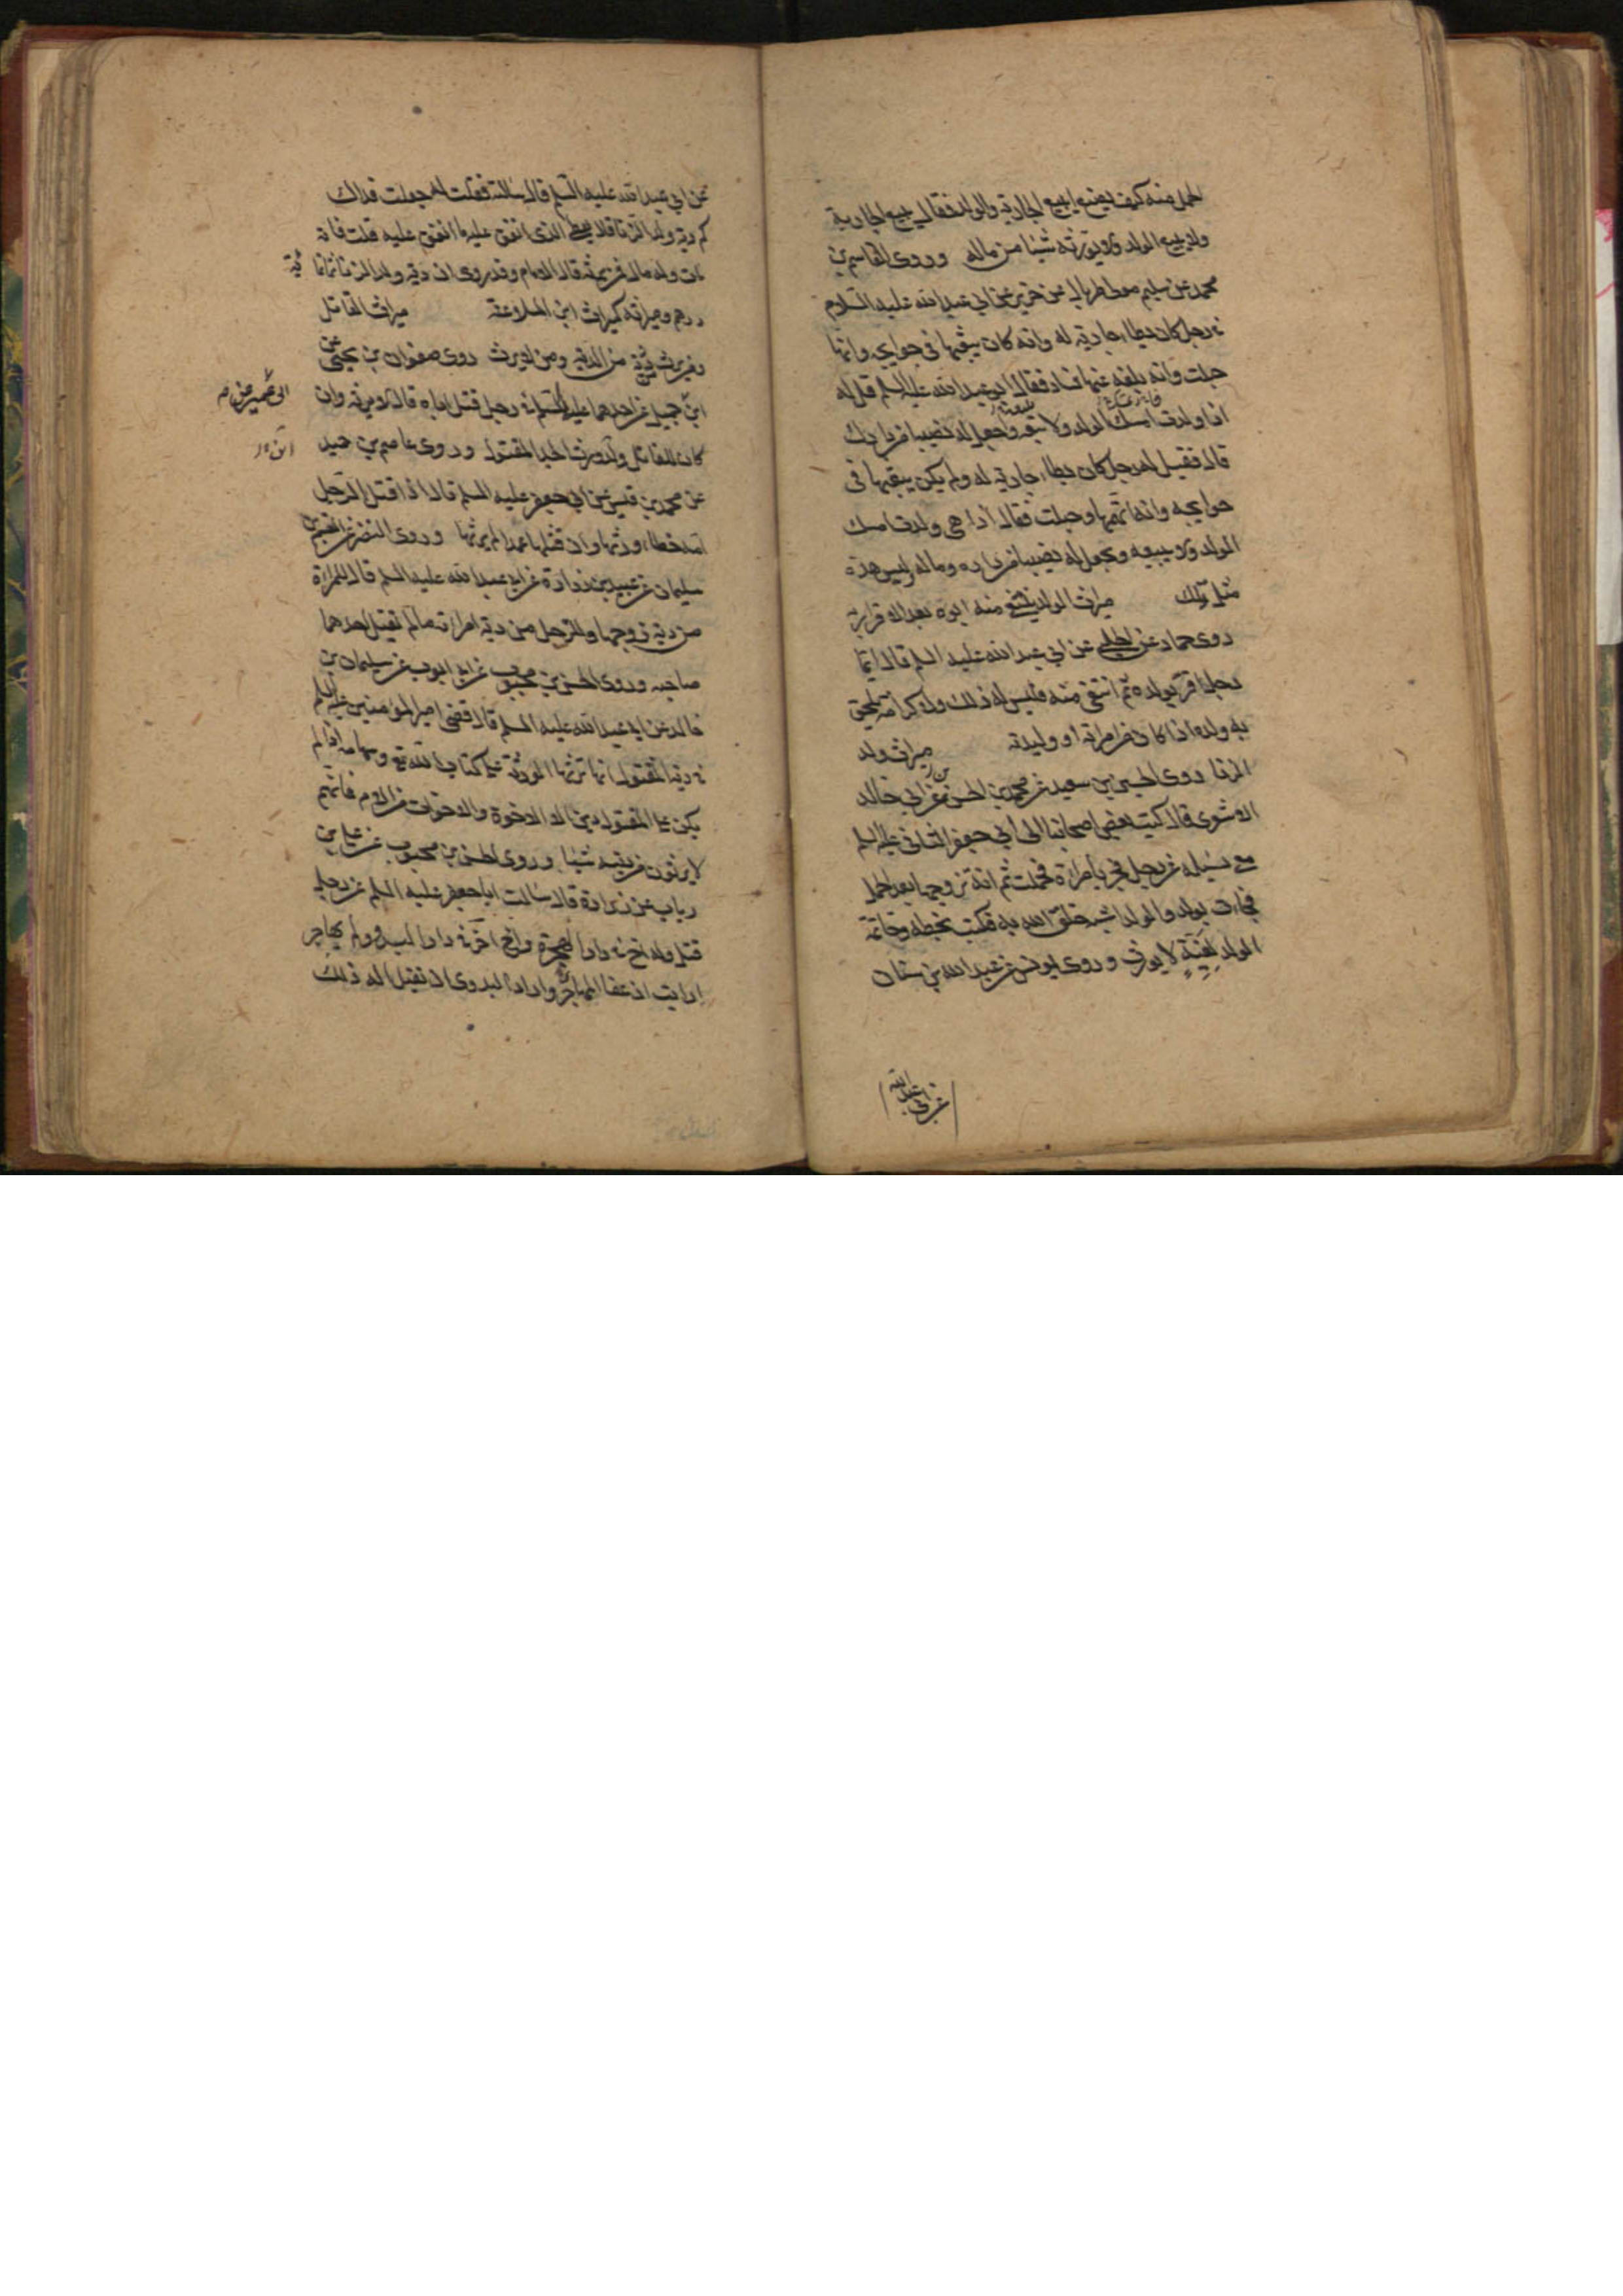 الحمل منه كيف يصنع ايبيع الجارية والولد فقال يبيع الجارية
ولا يبيع الولد ولا يورثه شيئا من ماله وروى القاسم بن
محمد عن سليم مولى طربال عن حريز عن ابي عبد الله عليه السلام
في رجل كان يطاء جارية له وانه كان يبعثها في حوايجه وانها
حبلت وانه بلغه عنها فساد فقال ابو عبد الله عليه السلم قل له
اذا ولدت امسك الولد ولا تبعه واجعل له نصيبا من دارك
قال فقيل له رجل كان يطاء جارية له ولم يكن يبعثها في
حوايجه وانه اتهمها وحبلت فقال اذا هي ولدت امسك
الولد ولا يبيعه ويجعل له نصيبا من داره وماله وليس هذه
مثل تلك ميراث الولد ينتفي منه ابوه بعد الاقرار به
روى حماد عن الحلبي عن ابي عبد الله عليه السلم قال ايما
رجل اقر بولده ثم انتفى منه فليس له ذلك ولا كرامة يلحق
به ولده اذا كان من امراته او وليدته ميراث ولد
الزنا روى الحسين بن سعيد عن محمد بن الحسن بن ابي خالد
الاشعرى قال كتب بعض اصحابنا الى ابي جعفر الثاني عليه السلم
معي يسئله عن رجل فجر بامراة فحملت ثم انه تزوجها بعد الحمل
فجاءت بولد والولد اشبه خلق الله به فكتب بخطه وخاتمه
الولد لغية لا يورث وروى يونس عن عبد الله بن سنان
عن ابي عبد الله
عن ابي عبد الله عليه السلم قال سالته فقلت له جعلت فداك
كم دية ولد الزنا قال يعطى الذى انفق عليه ما انفق عليه قلت فانه
مات وله مال فمن يرثه قال الامام وقد روى ان دية ولد الزنا ثمانما
ئة
درهم وميراثه كميراث ابن الملاعنة ميراث القاتل
ومن يرث من الدية ومن لا يرث روى صفوان بن يحيى عن
ابن
ابي عمير عن
جميل عن احدهما عليهما السلم في رجل قتل اباه قال لا يرثه وان
كان للقاتل ولد ورث الجد المقتول وروى عاصم بن حميد
عن محمد بن قيس عن ابي جعفر عليه السلم قال اذا قتل الرجل
امه خطاء ورثها وان قتلها عمدا لم يرثها وروى النضر عن القسم بن
سليمان عن عبيد بن زرارة عن ابي عبد الله عليه السلم قال للمراة
من دية زوجها وللرجل من دية امراته ما لم يقتل احدهما
صاحبه وروى الحسن بن محبوب عن ابي ايوب عن سليمان بن
خالد عن ابي عبد الله عليه السلم قال قضى امير المؤمنين عليه السلم
في دية المقتول انها ترثها الورثة على كتاب الله تع وسهامه اذا لم
يكن على المقتول دين الا الاخوة والاخوات من الام فانهم
لا يرثون من ديته شيئا وروى الحسن بن محبوب عن علي بن
رياب عن زرارة قال سالت ابا جعفر عليه السلم عن رجل
قتل وله اخ في دار الهجرة واخ اخر في دار البدو ولم يهاجر
ارايت ان عفا المهاجر واراد البدوى ان يقتل اله ذلك